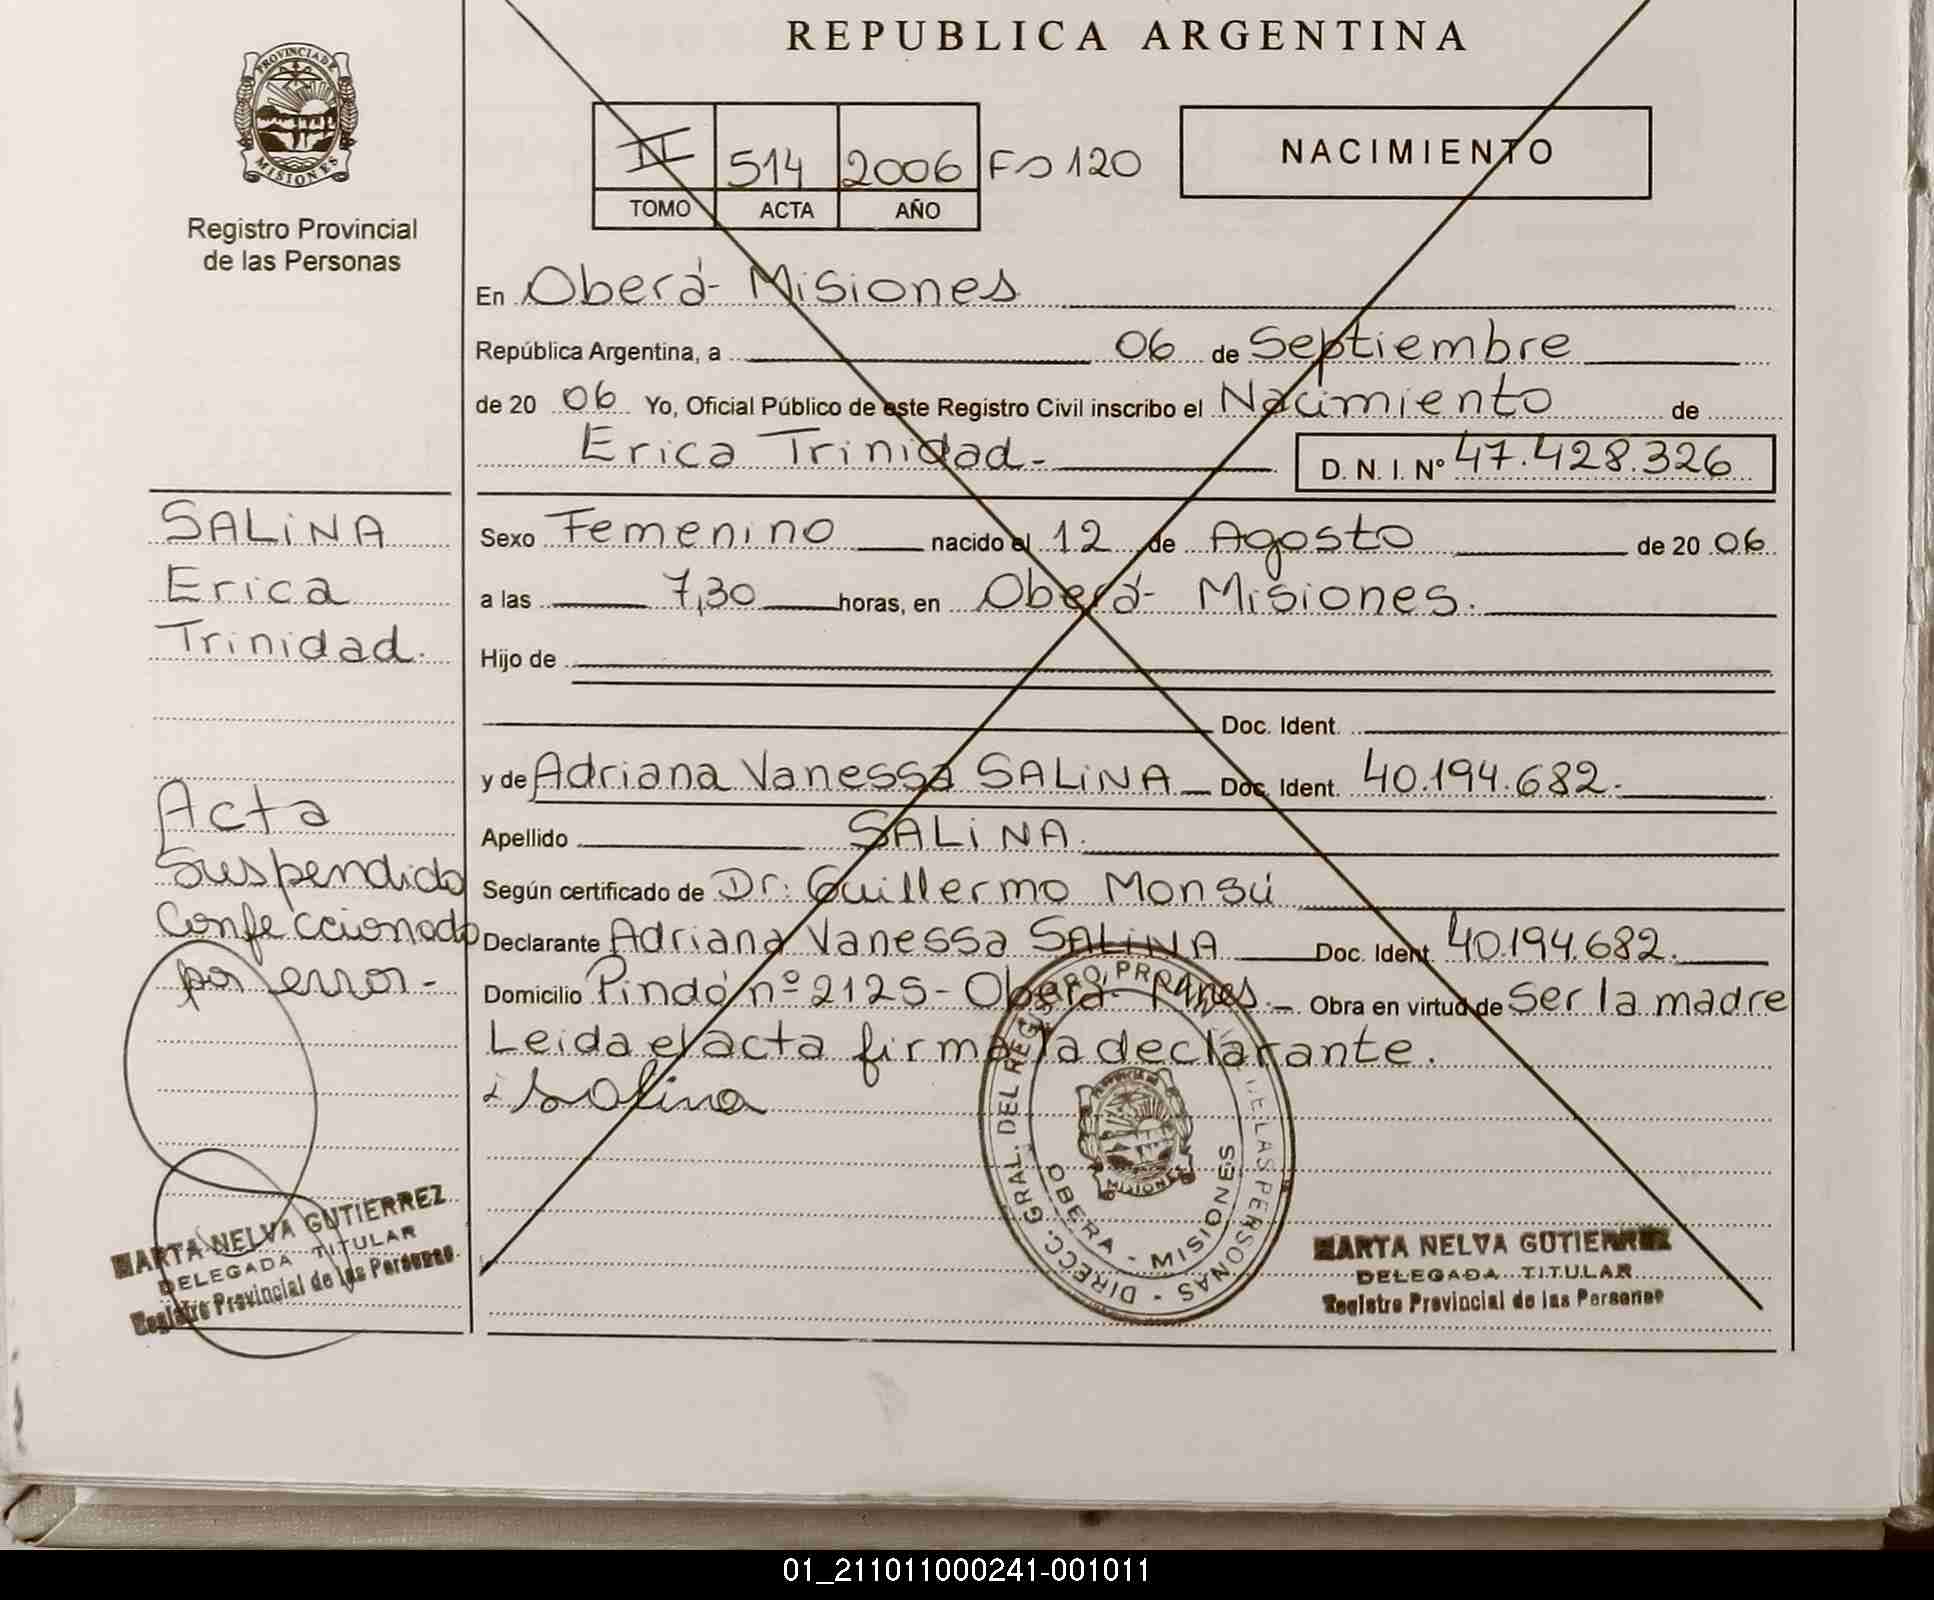 REPUBLICA ARGENTINA
PROVINCIA DE
MISIONES
Registro Provincial
de las Personas
II 514 2006 Fº 120
TOMO ACTA AÑO
NACIMIENTO
En Oberá - Misiones
República Argentina, a 06 de Septiembre
de 20 06 Yo, Oficial Público de este Registro Civil inscribo el Nacimiento de
Erica Trinidad.- D. N. I. Nº 47.428.326
SALINA
Erica
Trinidad.
Sexo Femenino nacido el 12 de Agosto de 20 06
a las 7,30 horas, en Oberá - Misiones.
Hijo de
Doc. Ident.
y de Adriana Vanessa SALINA Doc. Ident. 40.194.682.
Apellido SALINA.
Según certificado de Dr. Guillermo Monsú
Declarante Adriana Vanessa SALINA Doc. Ident. 40.194.682.
Domicilio Pindó nº 2125 - Oberá - Mnes. Obra en virtud de Ser la madre
Leida el acta firma la declarante.
Salina
Acta
Suspendido
Confeccionado
por error -
DIRECC. GRAL. DEL REGISTRO PROVINCIAL DE LAS PERSONAS -
MISIONES
OBERA - MISIONES
MARTA NELVA GUTIERREZ
DELEGADA TITULAR
Registro Provincial de las Personas
MARTA NELVA GUTIERREZ
DELEGADA TITULAR
Registro Provincial de las Personas
01_211011000241-001011